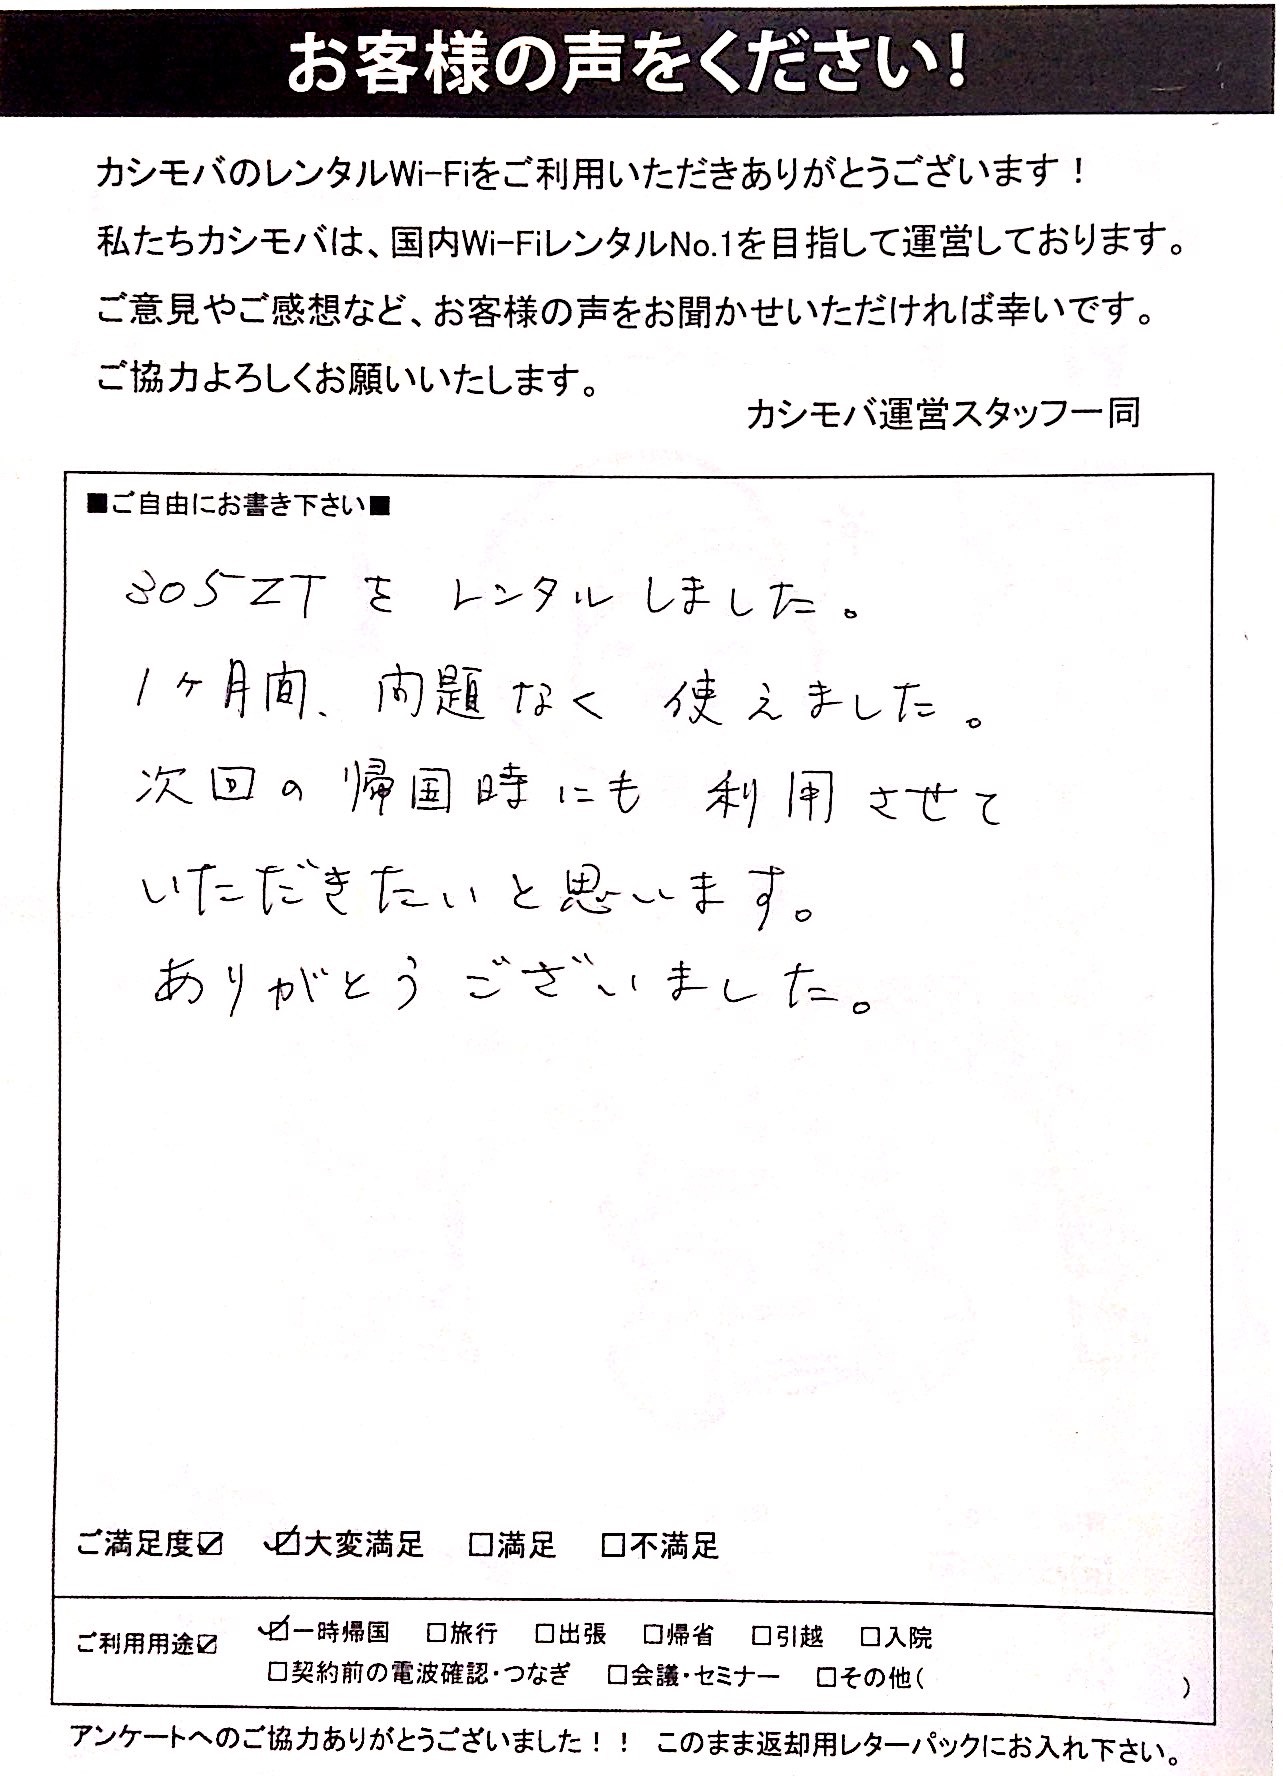 お客様の声をください!
カシモバのレンタルWi-Fiをご利用いただきありがとうございます！
私たちカシモバは、国内Wi-FiレンタルNo.1を目指して運営しております。
ご意見やご感想など、お客様の声をお聞かせいただければ幸いです。
ご協力よろしくお願いいたします。
カシモバ運営スタッフ一同
■ご自由にお書き下さい■
305ZTを レンタルしました。
1ヶ月間、問題なく 使えました。
次回の帰国時にも 利用させて
いただきたいと思います。
ありがとうございました。
ご満足度☑ ☑大変満足 □満足 □不満足
ご利用用途☑ ☑一時帰国 □旅行 □出張 □帰省 □引越 □入院
□契約前の電波確認・つなぎ □会議・セミナー □その他( )
アンケートへのご協力ありがとうございました！！ このまま返却用レターパックにお入れ下さい。